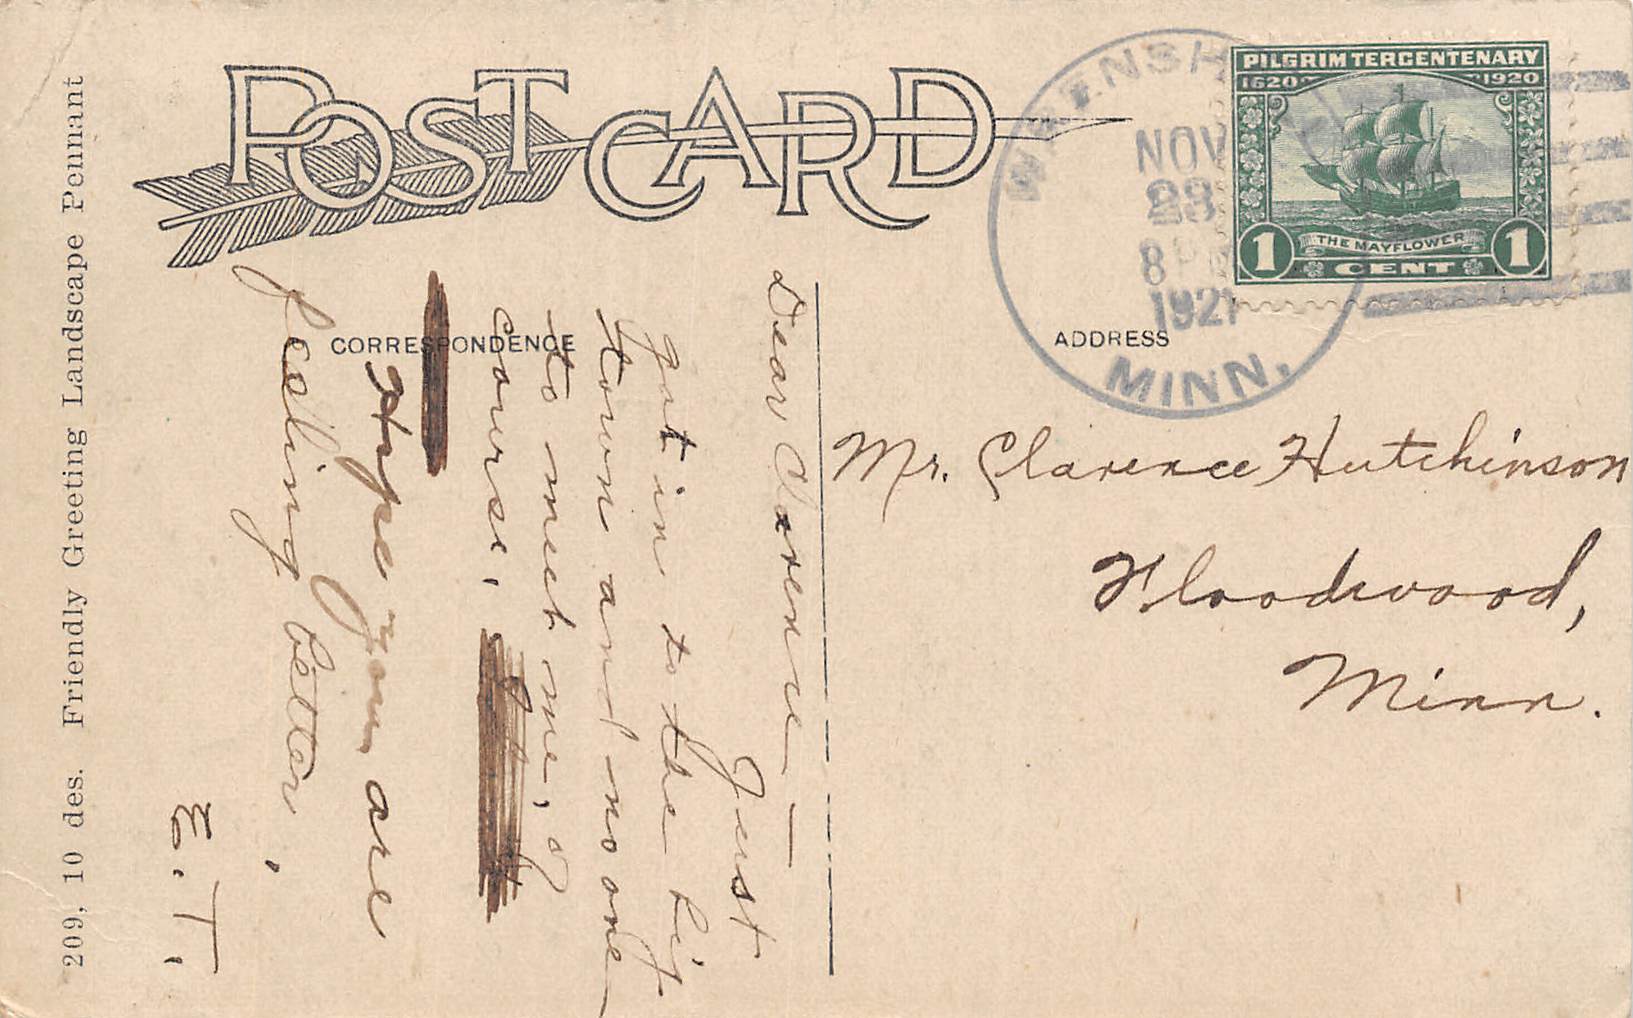 POST CARD
209, 10 des. Friendly Greeting Landscape Pennant
CORRESPONDENCE
Dear Clarence —
Just
got in to the big
town and no one
to meet me, of
course.
Hope you are
feeling better.
E. T.
ADDRESS
WARENSH
NOV
23
8 P
1921
MINN.
PILGRIM TERCENTENARY
1620 1920
THE MAYFLOWER
1 CENT 1
Mr. Clarence Hutchinson
Floodwood,
Minn.